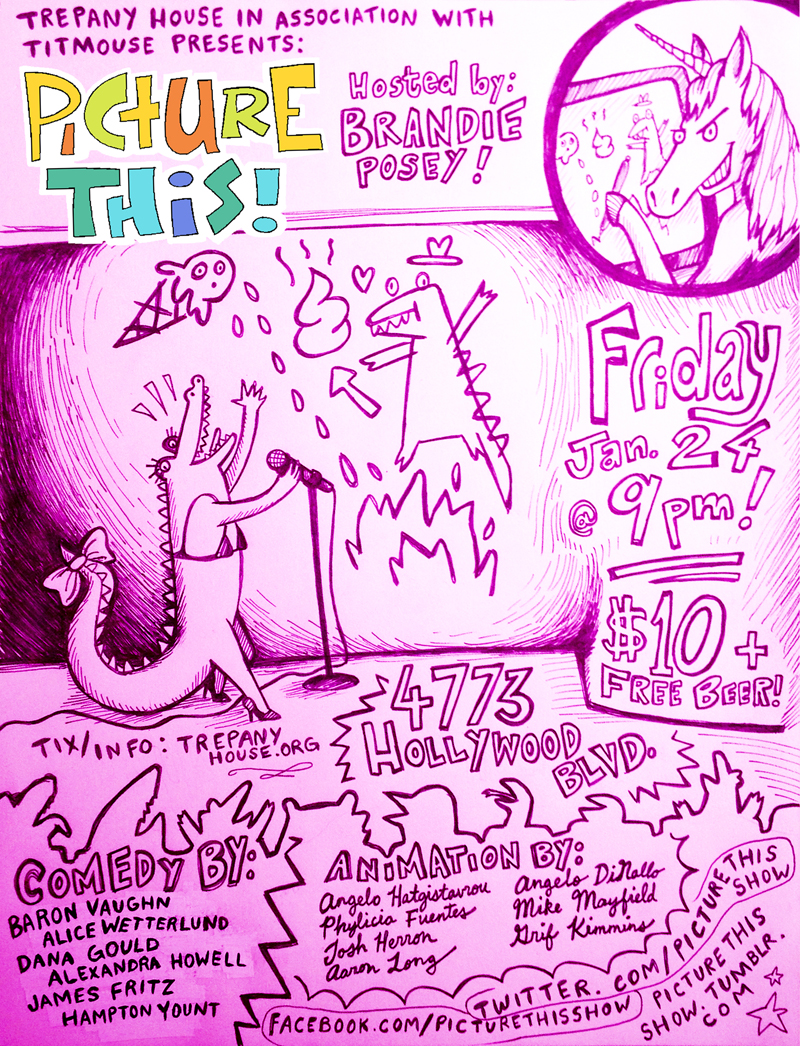 TREPANY HOUSE IN ASSOCIATION WITH
TITMOUSE PRESENTS:
PiCTURE
THiS!
Hosted by:
BRANDIE
POSEY!
Friday
Jan. 24
@ 9pm!
$10 +
FREE BEER!
4773
HOLLYWOOD
BLVD.
TIX/INFO: TREPANY
HOUSE.ORG
COMEDY BY:
BARON VAUGHN
ALICE WETTERLUND
DANA GOULD
ALEXANDRA HOWELL
JAMES FRITZ
HAMPTON YOUNT
ANiMATiON BY:
Angelo Hatgistavrou
Phylicia Fuentes
Josh Herron
Aaron Long
Angelo DiNallo
Mike Mayfield
Grif Kimmins
TWITTER.COM/PICTURETHIS
SHOW
FACEBOOK.COM/PICTURETHISSHOW
PICTURE THIS
SHOW.TUMBLR.
COM